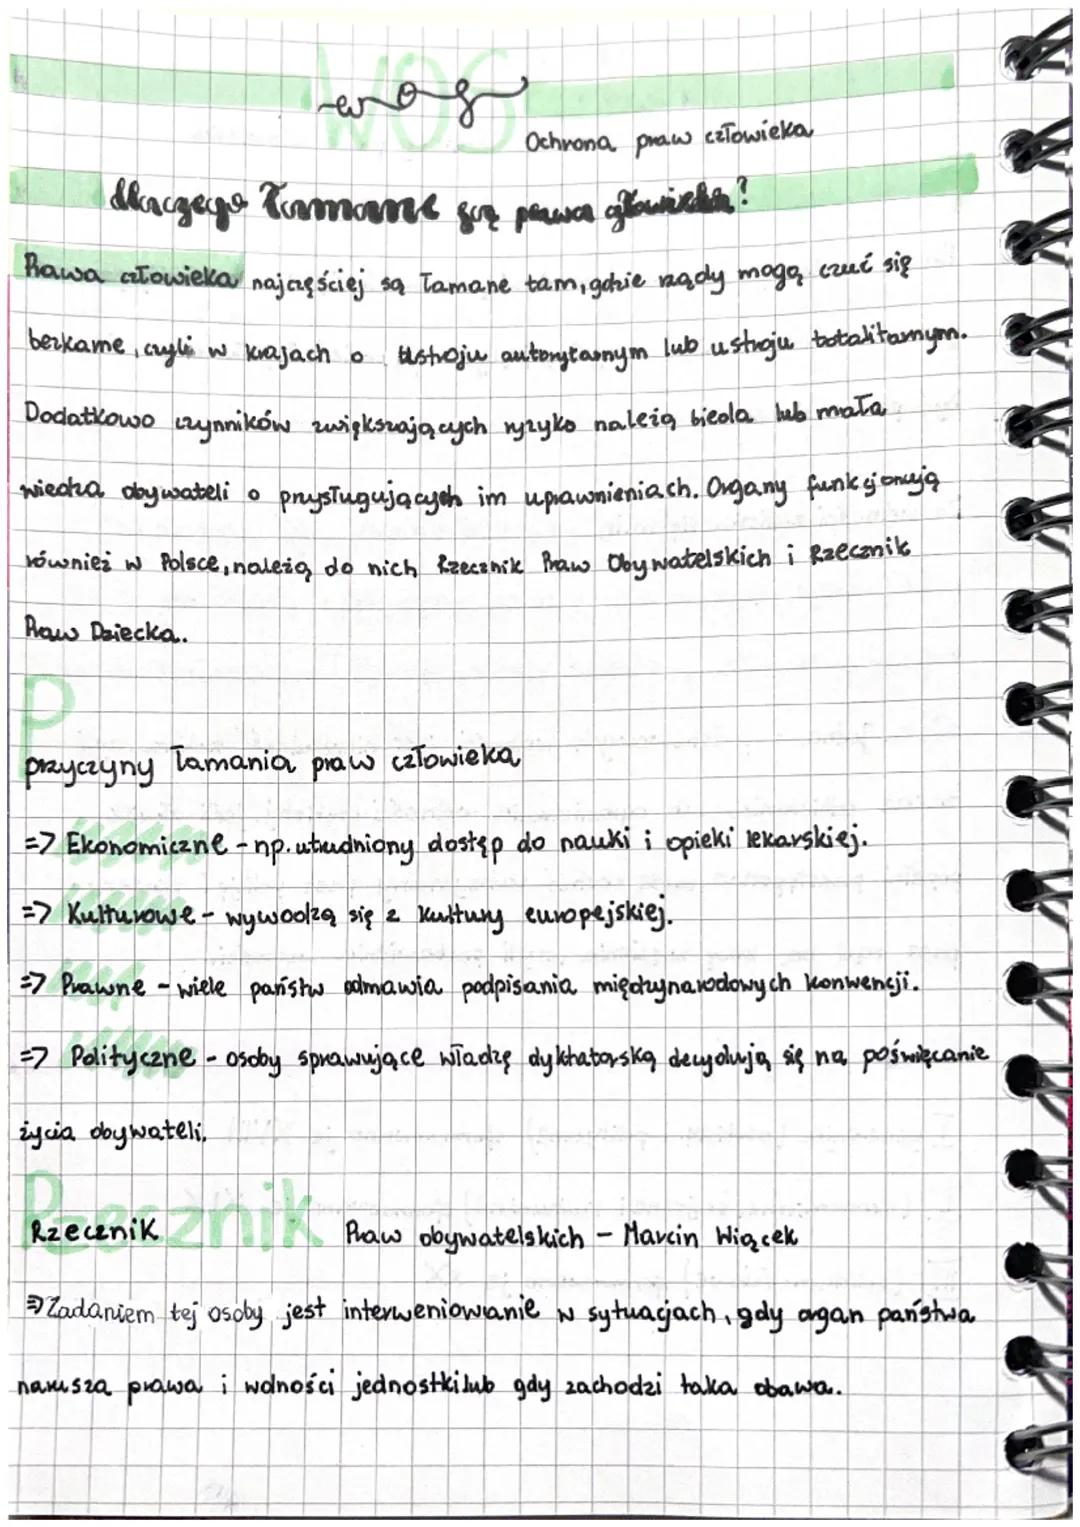 WOS
wos
Ochrona praw człowieka
dlaczego łamane są prawa człowieka?
Prawa człowieka najczęściej są łamane tam, gdzie rządy mogą czuć się
bezkarne, czyli w krajach o ustroju autorytarnym lub ustroju totalitarnym.
Dodatkowo czynników zwiększających ryzyko należą bieda lub mała
wiedza obywateli o przysługujących im uprawnieniach. Organy funkcjonują
również w Polsce, należą do nich Rzecznik Praw Obywatelskich i Rzecznik
Praw Dziecka.
P
przyczyny łamania praw człowieka
=> Ekonomiczne - np. utrudniony dostęp do nauki i opieki lekarskiej.
=> Kulturowe - wywodzą się z kultury europejskiej.
=> Prawne - wiele państw odmawia podpisania międzynarodowych konwencji.
=> Polityczne - osoby sprawujące władzę dyktatorską decydują się na poświęcanie
życia obywateli.
Rzecznik
Rzecznik Praw obywatelskich - Marcin Wiącek
=> Zadaniem tej osoby jest interweniowanie w sytuacjach, gdy organ państwa
narusza prawa i wolności jednostki lub gdy zachodzi taka obawa.